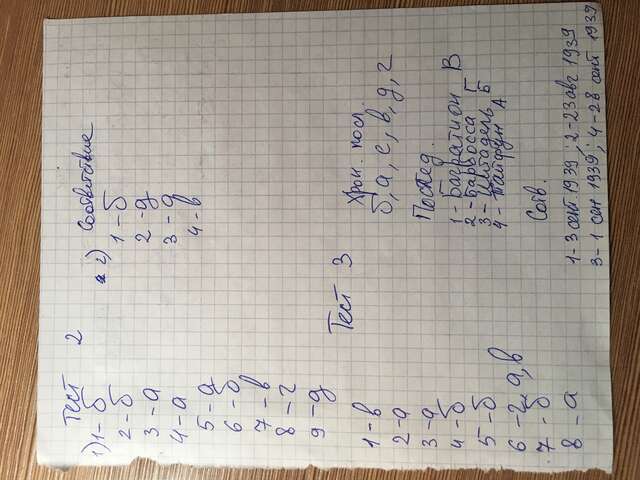 Тест 2
1) 1 - б
2 - б
3 - а
4 - а
5 - д
6 - б
7 - в
8 - г
9 - д
2) Соответствие
1 - б
2 - д
3 - а
4 - в
Тест 3
1 - в
2 - а
3 - а
4 - б
5 - б
6 - г, а, в
7 - б
8 - а
Хрон. посл.
б, а, е, в, д, г
Послед.
1 - Багратион В
2 - Барбосса Г
3 - Цитадель Б
4 - Тайфун А
Сотв.
1 - 3 сент. 1939 ; 2 - 23 авг 1939
3 - 1 сен 1939 ; 4 - 28 сент 1939